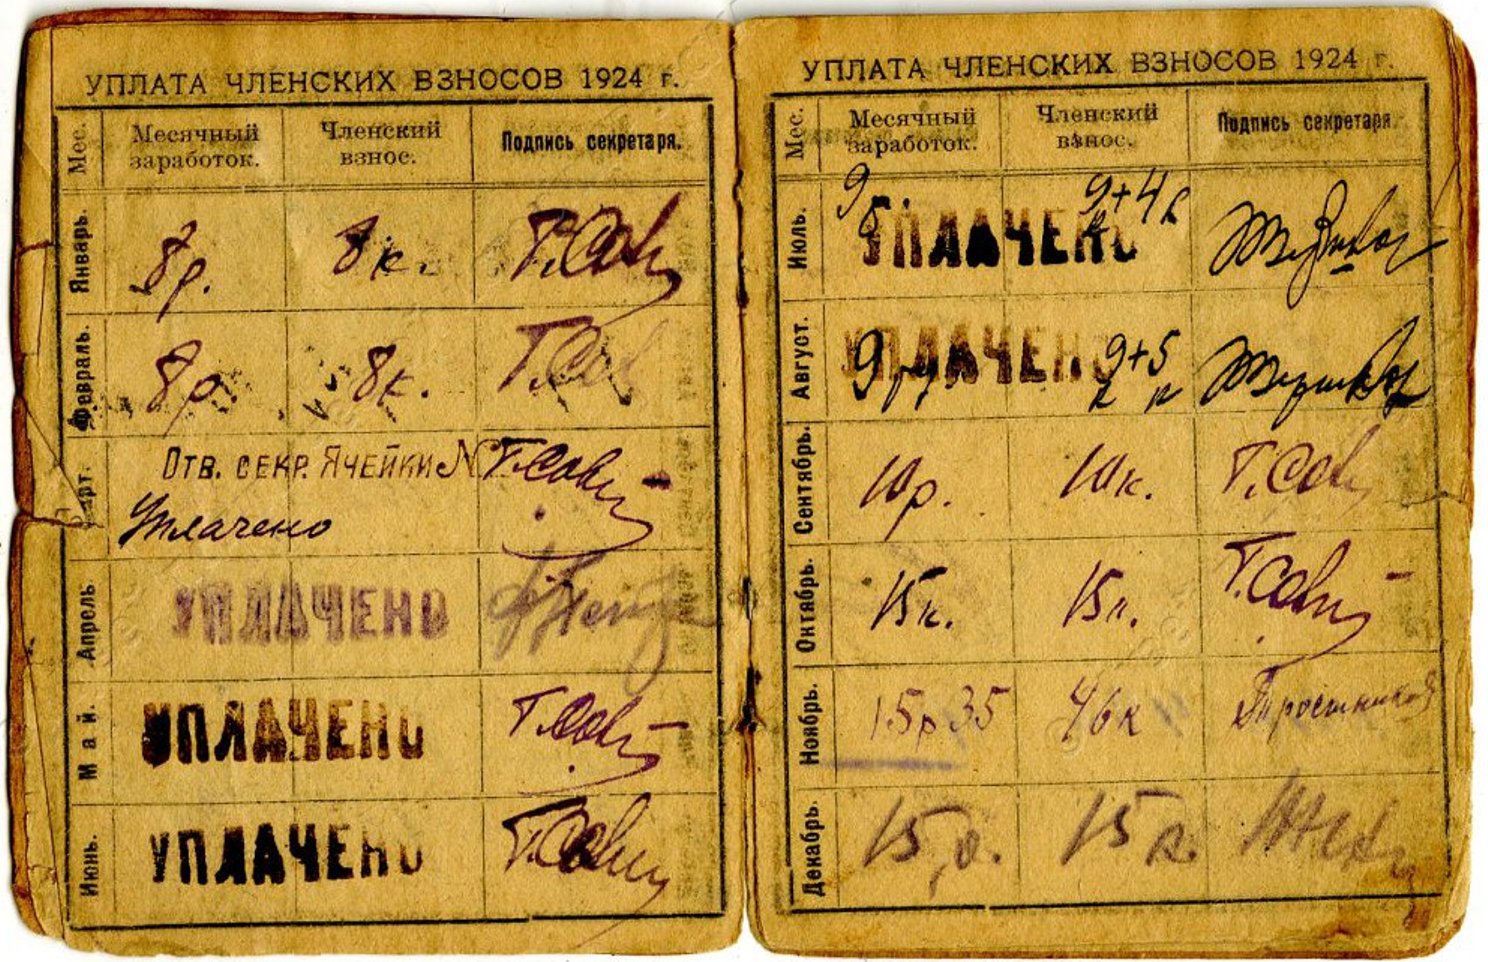 УПЛАТА ЧЛЕНСКИХ ВЗНОСОВ 1924 г.
Мес. Месячный заработок. Членский взнос. Подпись секретаря.
Январь. 8р. 8к. Т.Сов
Февраль. 8р 8к. Т.Сов
Март. Отв. секр. Ячейки № Т.Сов
Уплачено
Апрель УПЛАЧЕНО
Май. УПЛАЧЕНО Т.Сов
Июнь. УПЛАЧЕНО Т.Сов
УПЛАТА ЧЛЕНСКИХ ВЗНОСОВ 1924 г.
Мес. Месячный заработок. Членский взнос. Подпись секретаря.
Июль. 9 УПЛАЧЕНО 9+4к
Август. 9 УПЛАЧЕНО 9+5 к к
Сентябрь. 10р. 10к. Т.Сов
Октябрь. 15к. 15к. Т.Сов
Ноябрь. 15р35 46к Тростников
Декабрь. 15р. 15к.